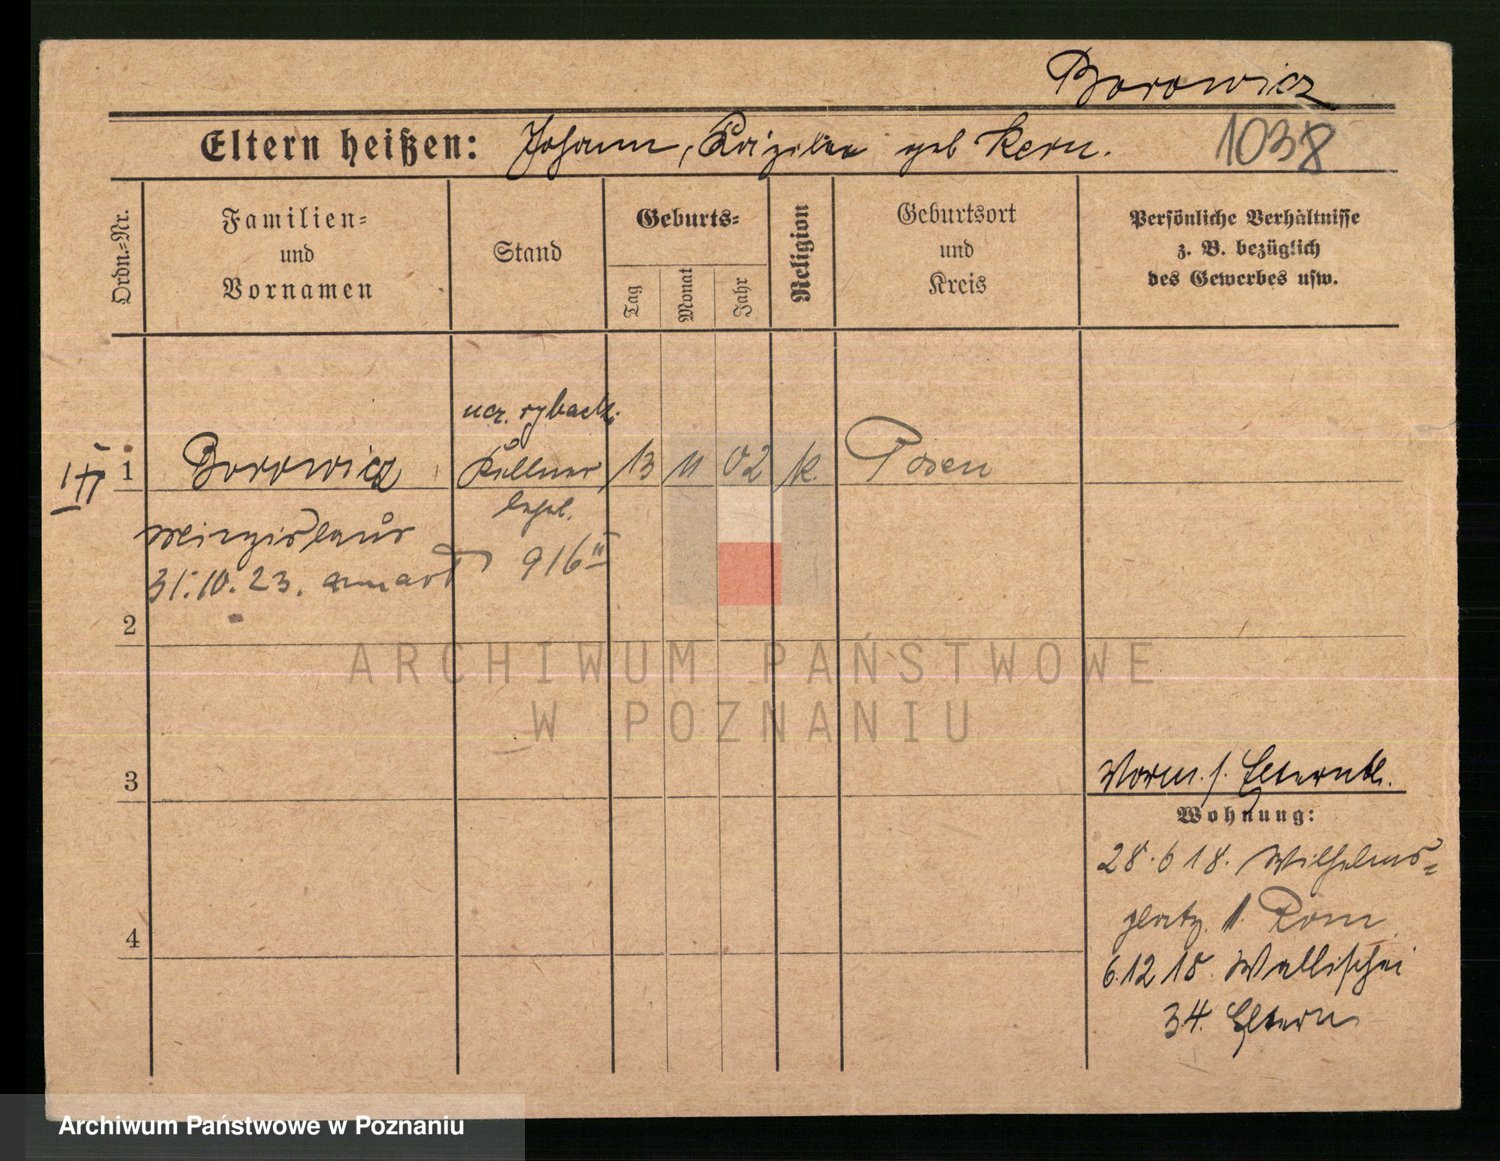 Borowicz
Eltern heißen: Johann, geb Kern.
1038
Ordn.-Nr.
Familien-
und
Vornamen
Stand
Geburts-
Tag
Monat
Jahr
Religion
Geburtsort
und
Kreis
Persönliche Verhältnisse
z. B. bezüglich
des Gewerbes usw.
ucz.
1 Borowicz Kellner 13 11 02 k. Posen
lehrl.
Miezislaus
916
31.10.23. zmarł
2
ARCHIWUM PAŃSTWOWE
W POZNANIU
3
Vorm. s. Elternbl.
Wohnung:
28.6 18. Wilhelms-
platz 1. Rom
4
6.12 18. Wallischei
34. Eltern
Archiwum Państwowe w Poznaniu